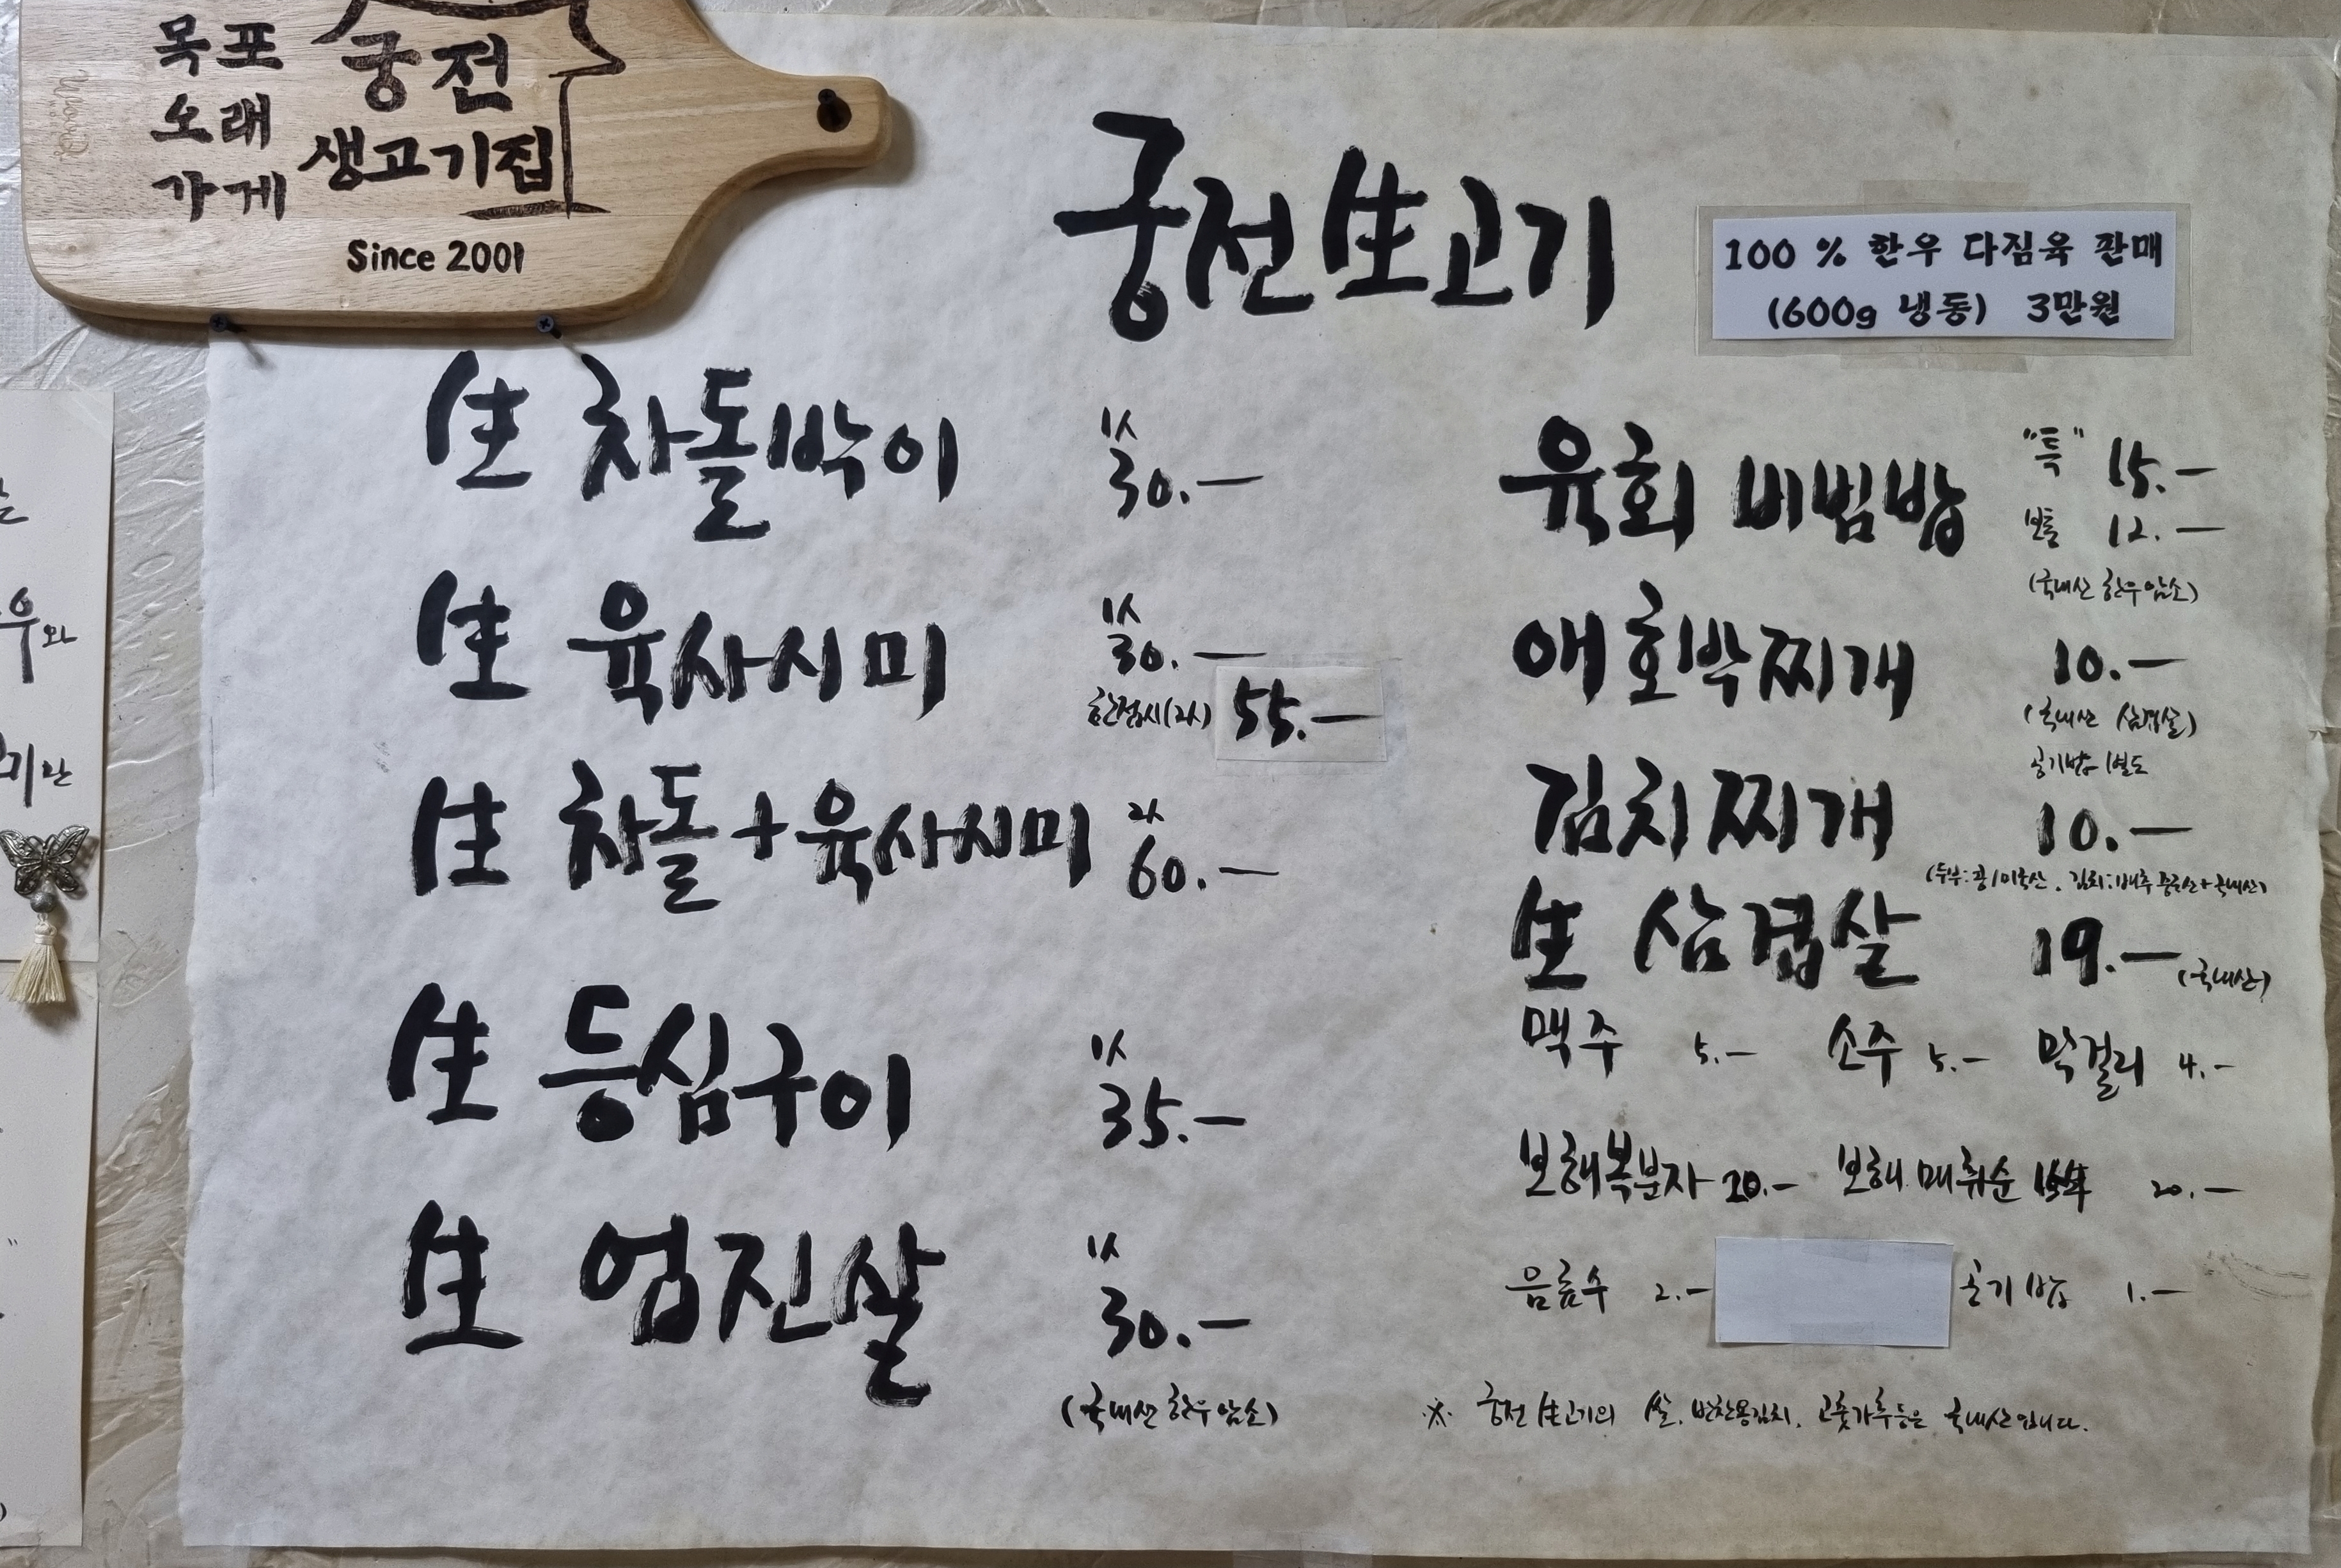 목포 궁전
오래 생고기집
가게
Since 2001
궁전生고기
100 % 한우 다짐육 판매
(600g 냉동) 3만원
生 차돌박이 1人 30.—
生 육사시미 1人 30.—
한접시(2人) 55.—
生 차돌+육사시미 2人 60.—
生 등심구이 1人 35.—
生 엄진살 1人 30.—
(국내산 한우 암소)
육회 비빔밥 "특" 15.—
보통 12.—
(국내산 한우 암소)
애호박찌개 10.—
(국내산 삼겹살)
공기밥 별도
김치찌개 10.—
(두부:콩/미국산, 김치:배추 중국산+국내산)
生 삼겹살 19.— (국내산)
맥주 5.— 소주 5.— 막걸리 4.—
보해복분자 20.— 보해 매취순 20.—
음료수 2.— 공기밥 1.—
※ 궁전 生고기의 쌀, 반찬용김치, 고춧가루등은 국내산입니다.
우와